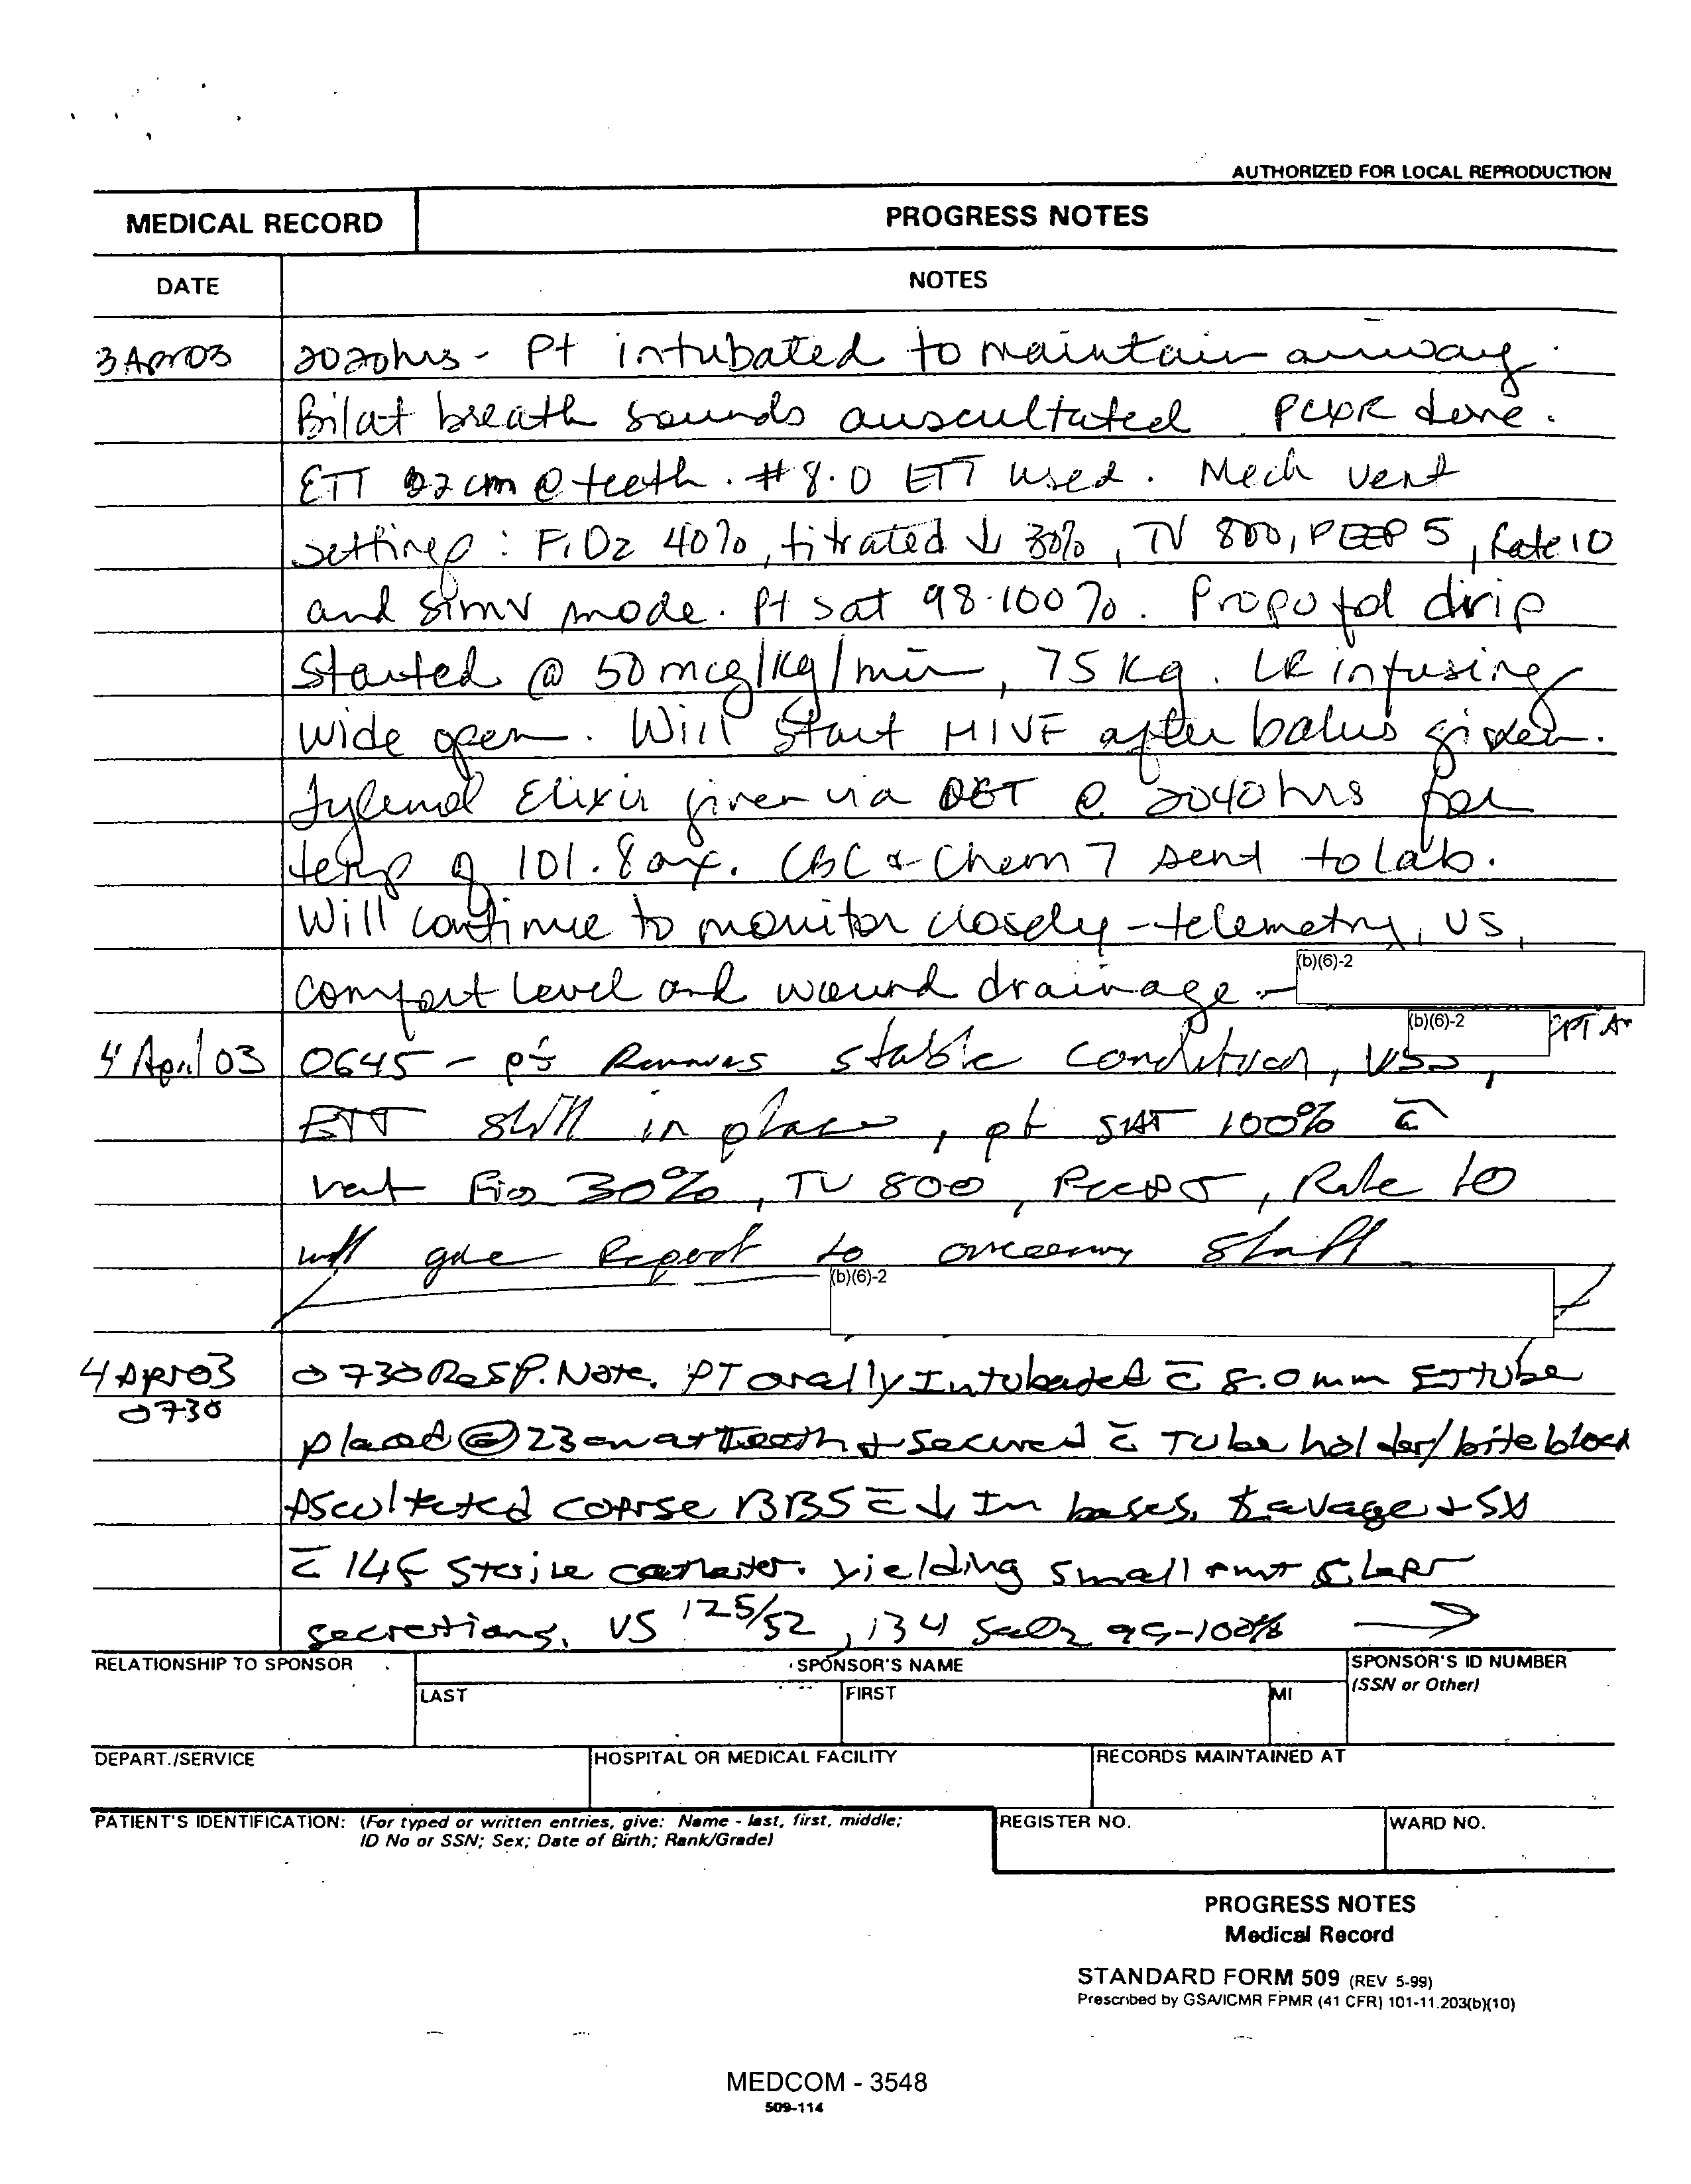 AUTHORIZED FOR LOCAL REPRODUCTION
MEDICAL RECORD
PROGRESS NOTES
DATE
NOTES
3 Apr 03 2020hrs - Pt intubated to maintain airway.
Bilat breath sounds auscultated. PCXR done.
ETT 22cm @ teeth. #8.0 ETT used. Mech vent
settings: FiO2 40%, titrated ↓ 30%, TV 800, PEEP 5, Rate 10
and SIMV mode. Pt sat 98-100%. Propofol drip
started @ 50 mcg/kg/min, 75 Kg. LR infusing
wide open. Will start MIVF after bolus given.
Tylenol Elixir given via @ 2040 hrs for
temp of 101.8 ax. CBC & Chem 7 send to lab.
Will continue to monitor closely - telemetry, VS,
comfort level and wound drainage. -
(b)(6)-2
(b)(6)-2 CPT AN
4 April 03 0645 - pt stable condition, VSS,
ETT still in place, pt SAT 100% c̄
vent Fio2 30%, TV 800, Peep 5, Rate 10
will give Report to oncoming staff
(b)(6)-2
4 Apr 03 0730 Resp. Note. PT orally Intubated c̄ 8.0mm ET tube
0730
placed @ 23cm at teeth + secured c̄ Tube holder/bite block
Ascultated coarse BBS c̄ ↓ In bases. Lavage + SX
c̄ 14F sterile catheter. yielding small amt clear
secretions. VS 125/52, 134 SaO2 99-100% →
RELATIONSHIP TO SPONSOR
SPONSOR'S NAME
SPONSOR'S ID NUMBER
(SSN or Other)
LAST
FIRST
MI
DEPART./SERVICE
HOSPITAL OR MEDICAL FACILITY
RECORDS MAINTAINED AT
PATIENT'S IDENTIFICATION: (For typed or written entries, give: Name - last, first, middle;
ID No or SSN; Sex; Date of Birth; Rank/Grade)
REGISTER NO.
WARD NO.
PROGRESS NOTES
Medical Record
STANDARD FORM 509 (REV 5-99)
Prescribed by GSA/ICMR FPMR (41 CFR) 101-11.203(b)(10)
MEDCOM - 3548
509-114